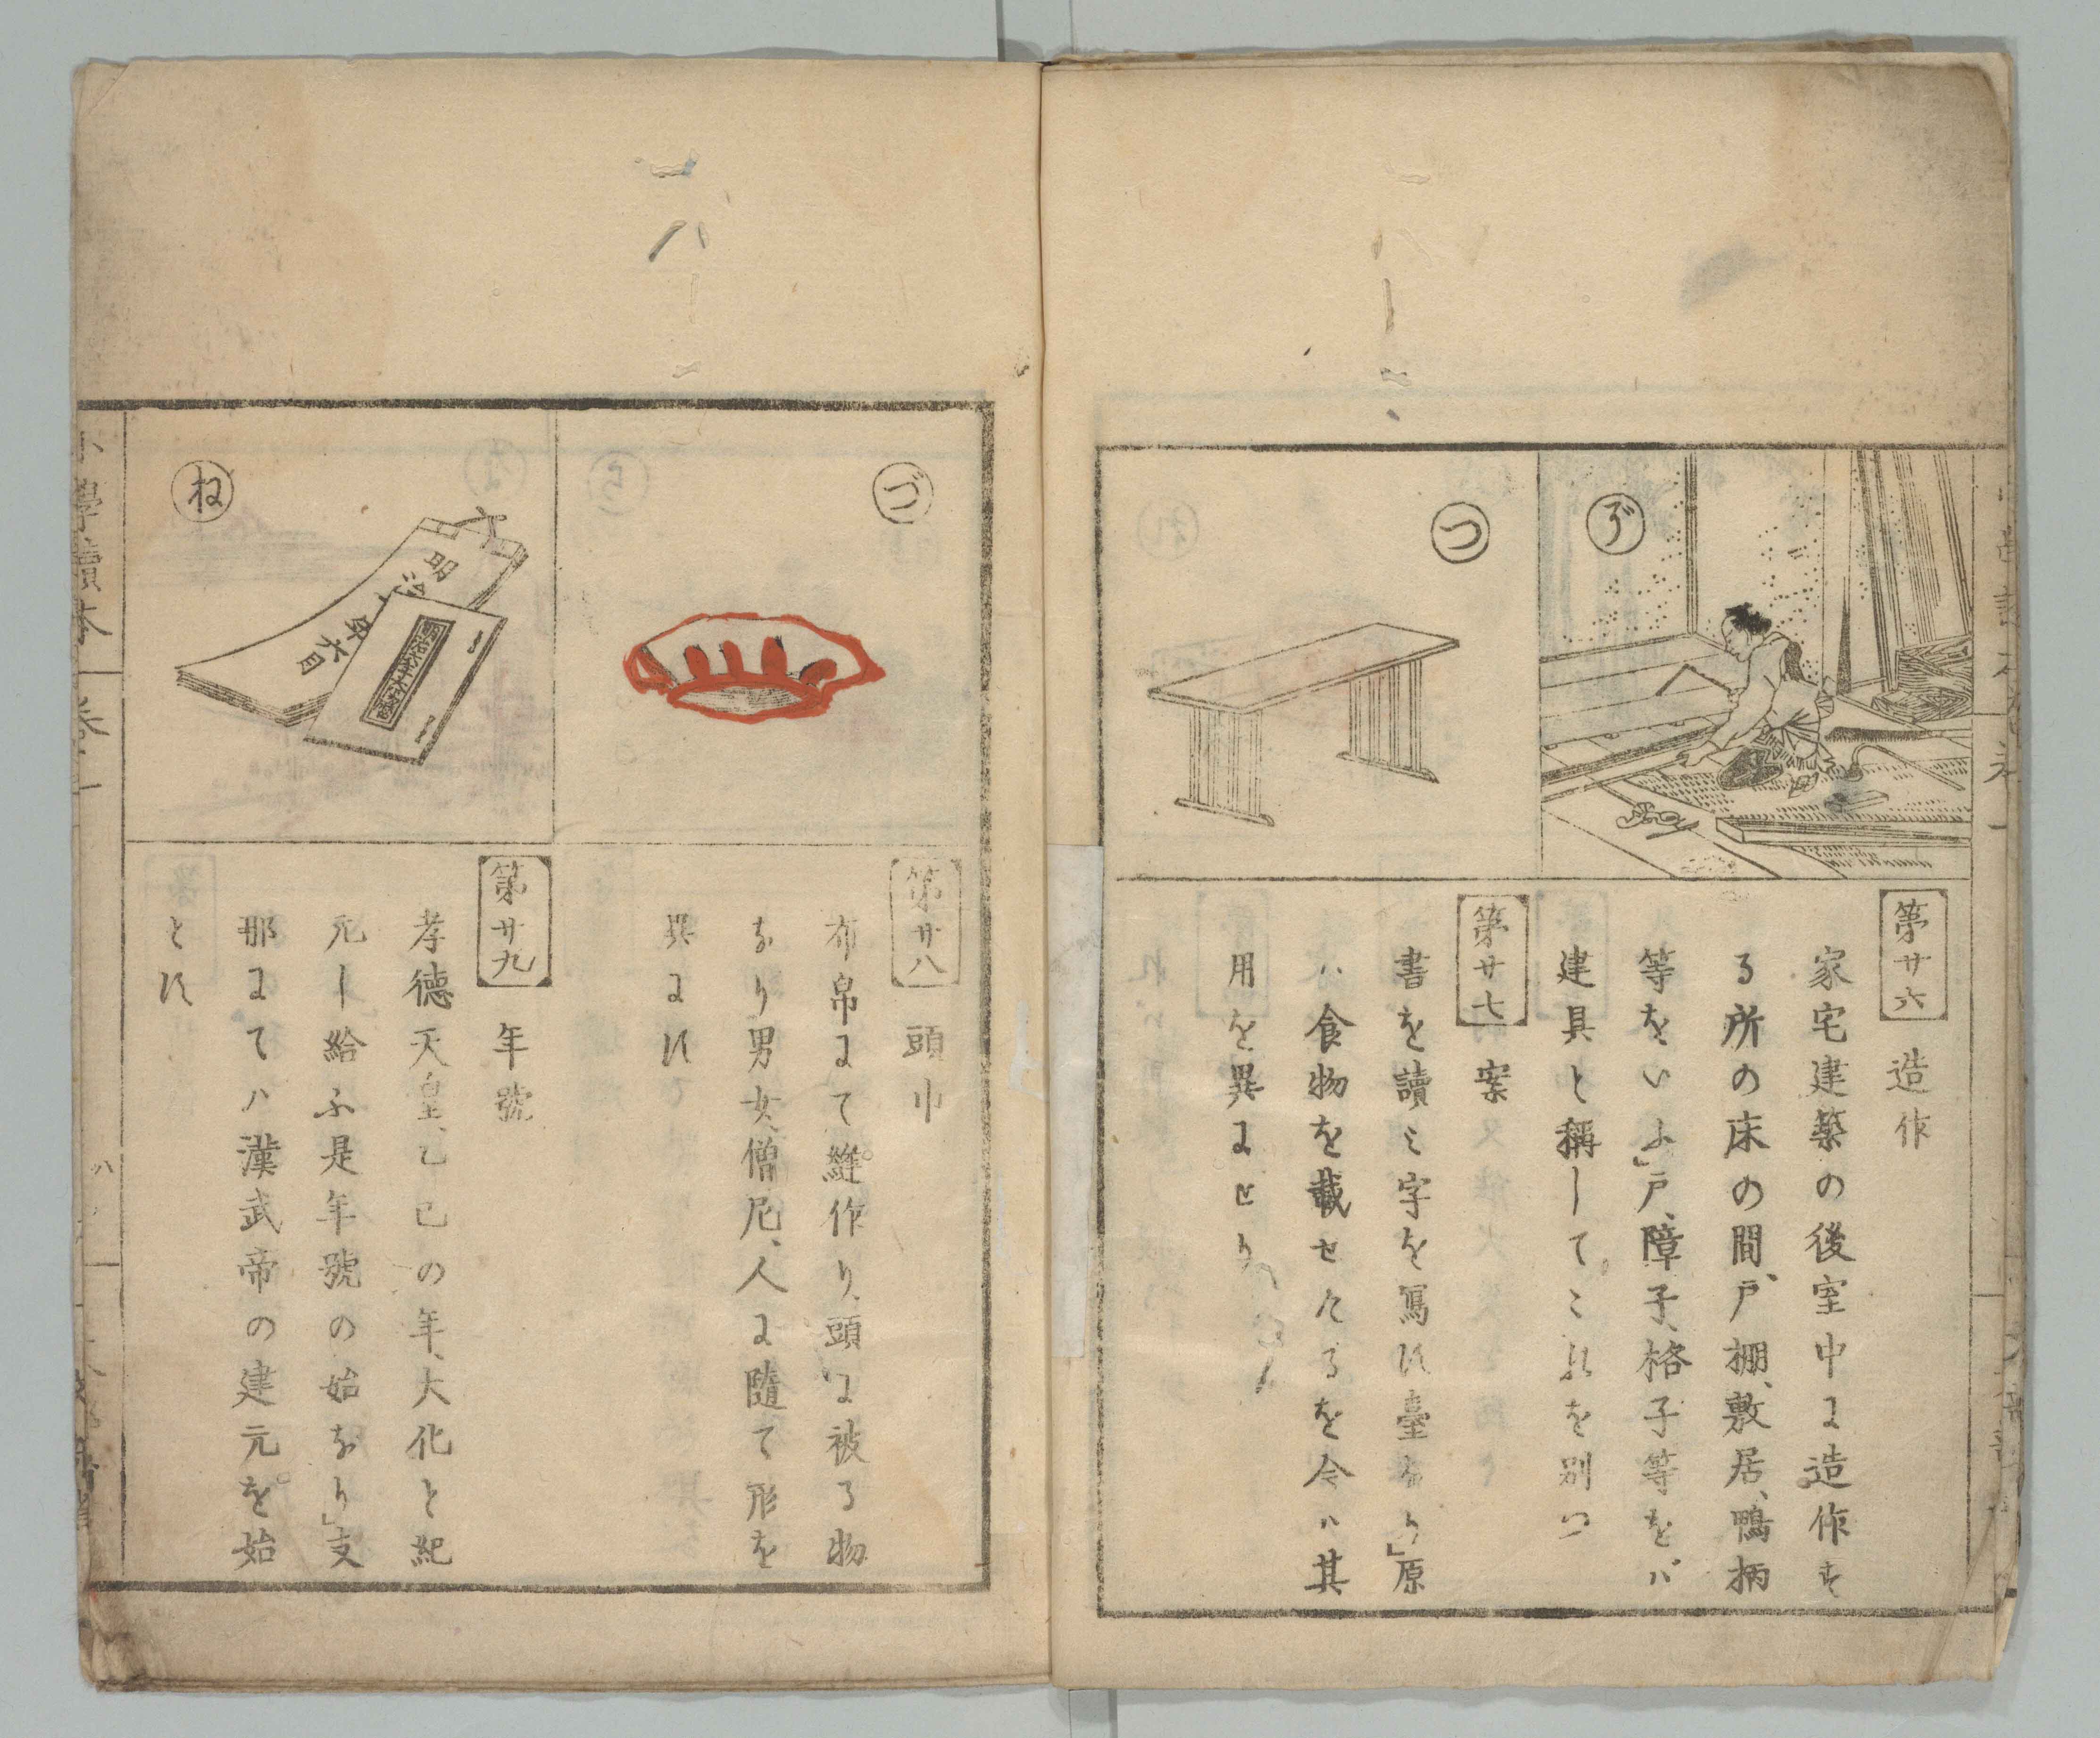 ぞ
つ
第廿六 造作
家宅建築の後室中に造作す
る所の床の間、戸棚、敷居、鴨柄
等をいふ」戸、障子、格子等をバ
建具と稱してこれを別つ
第廿七 案
書を讀ミ字を寫す臺なり」原
ハ食物を載せたるを今ハ其
用を異にせり
づ
ね
明治
第廿八 頭巾
布帛にて縫作り、頭に被る物
なり男女、僧尼、人に隨て形を
異にす
第廿九 年號
孝德天皇、乙巳の年、大化と紀
元し給ふ是年號の始なり」支
那にてハ漢武帝の建元を始
とす
小學讀本 卷一 八